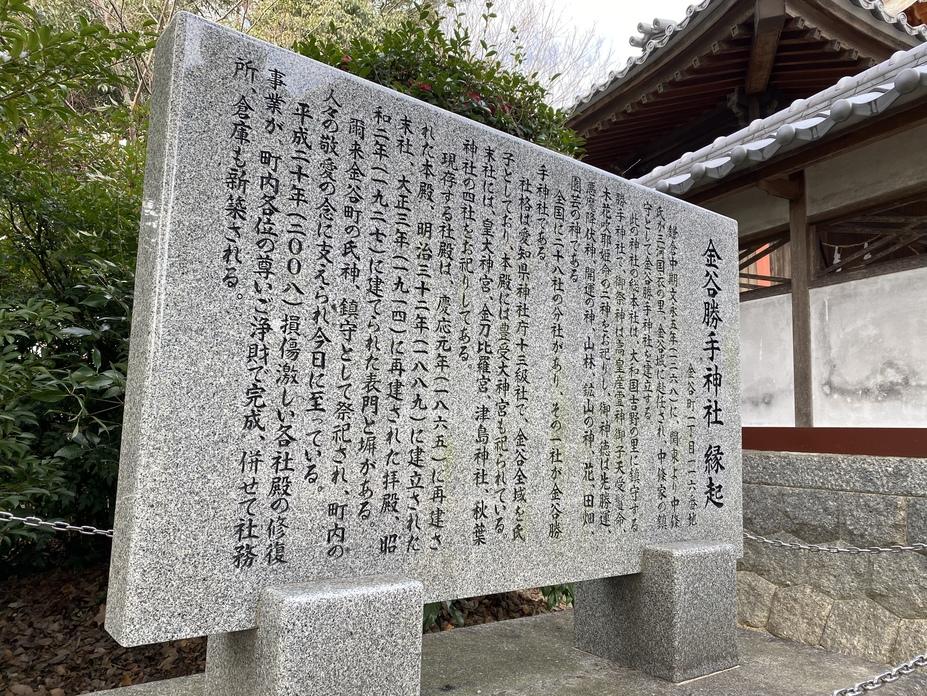 金谷勝手神社 縁起
金谷町一丁目一一六番地
鎌倉中期文永五年(一二六八)に、関東より中條
氏が三河国衣の里、金谷城に赴任され、中條家の鎮
守として金谷勝手神社を建立する。
此の神社の総本社は、大和国吉野の里に鎮守する
勝手神社で、御祭神は高皇産霊神御子天受売命、
木花咲耶姫命の二神をお祀りし、御神徳は先勝運、
悪魔降伏神、開運の神、山林、鉱山の神、花、田畑、
園芸の神である。
全国に二十八社の分社があり、その一社が金谷勝
手神社である。
社格は愛知県神社庁十三級社で、金谷全域を氏
子としており、本殿には豊受大神宮も祀られている。
末社には、皇大神宮、金刀比羅宮、津島神社、秋葉
神社の四社をお祀りしてある。
現存する社殿は、慶応元年(一八六五)に再建さ
れた本殿、明治三十二年(一八八九)に建立された
末社、大正三年(一九一四)に再建された拝殿、昭
和二年(一九二七)に建てられた表門と塀がある
爾来金谷町の氏神、鎮守として祭祀され、町内の
人々の敬愛の念に支えられ今日に至っている。
平成二十年(二〇〇八)損傷激しい各社殿の修復
事業が、町内各位の尊いご浄財で完成、併せて社務
所、倉庫も新築される。